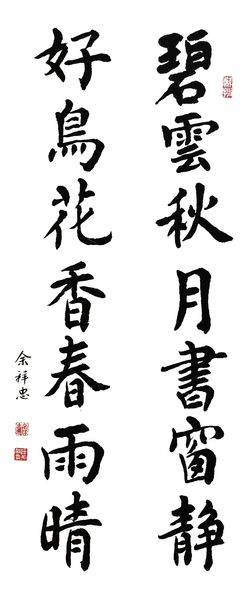 碧雲秋月書窗静
好鳥花香春雨晴
余祥忠